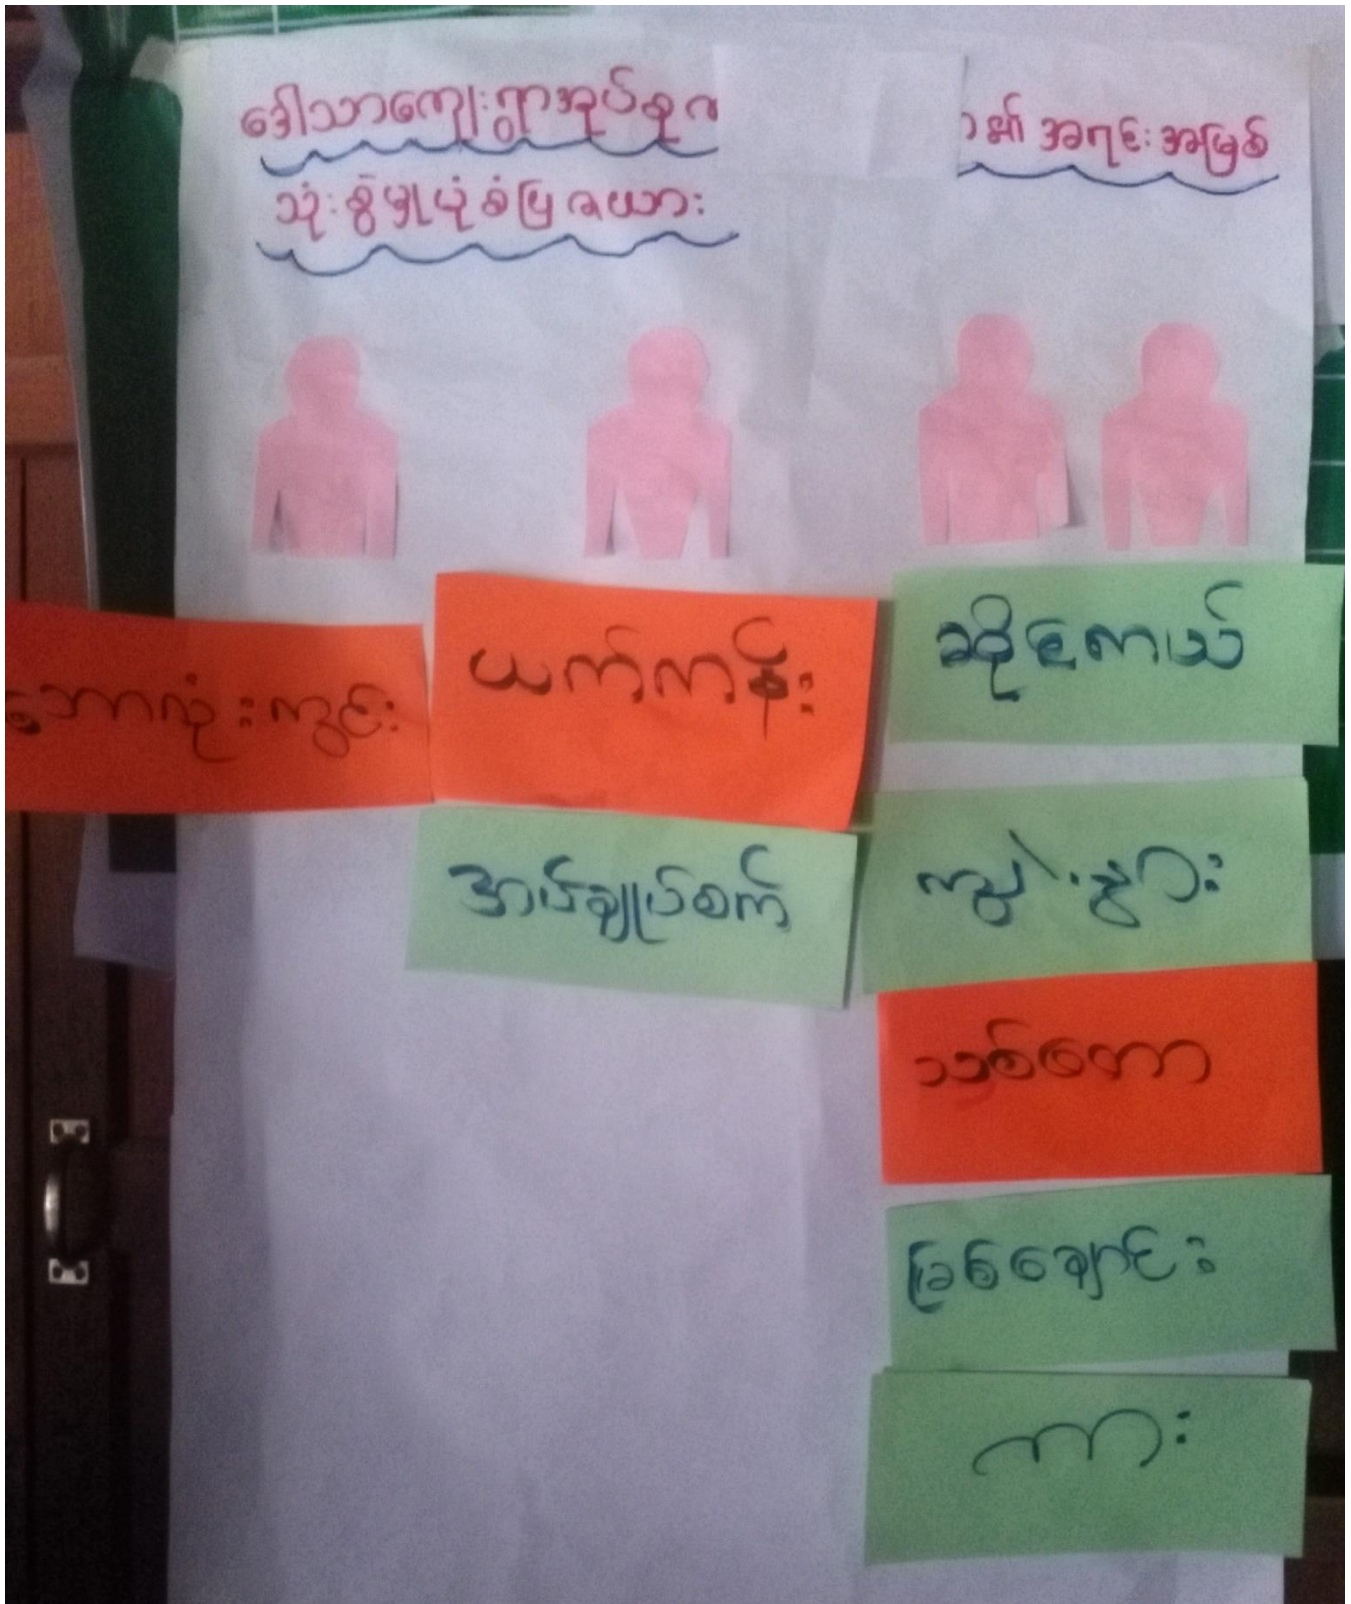 ဒေါသာကျေးရွာအုပ်စု
၏ အရင်းအမြစ်
သုံးစွဲမှုပုံစံပြဇယား
ဘောလုံးကွင်း
ယက်ကန်း
အပ်ချုပ်စက်
ဆိုင်ကယ်
ကျွဲ၊နွား
သစ်တော
ခြစ်ချောင်း
ကား